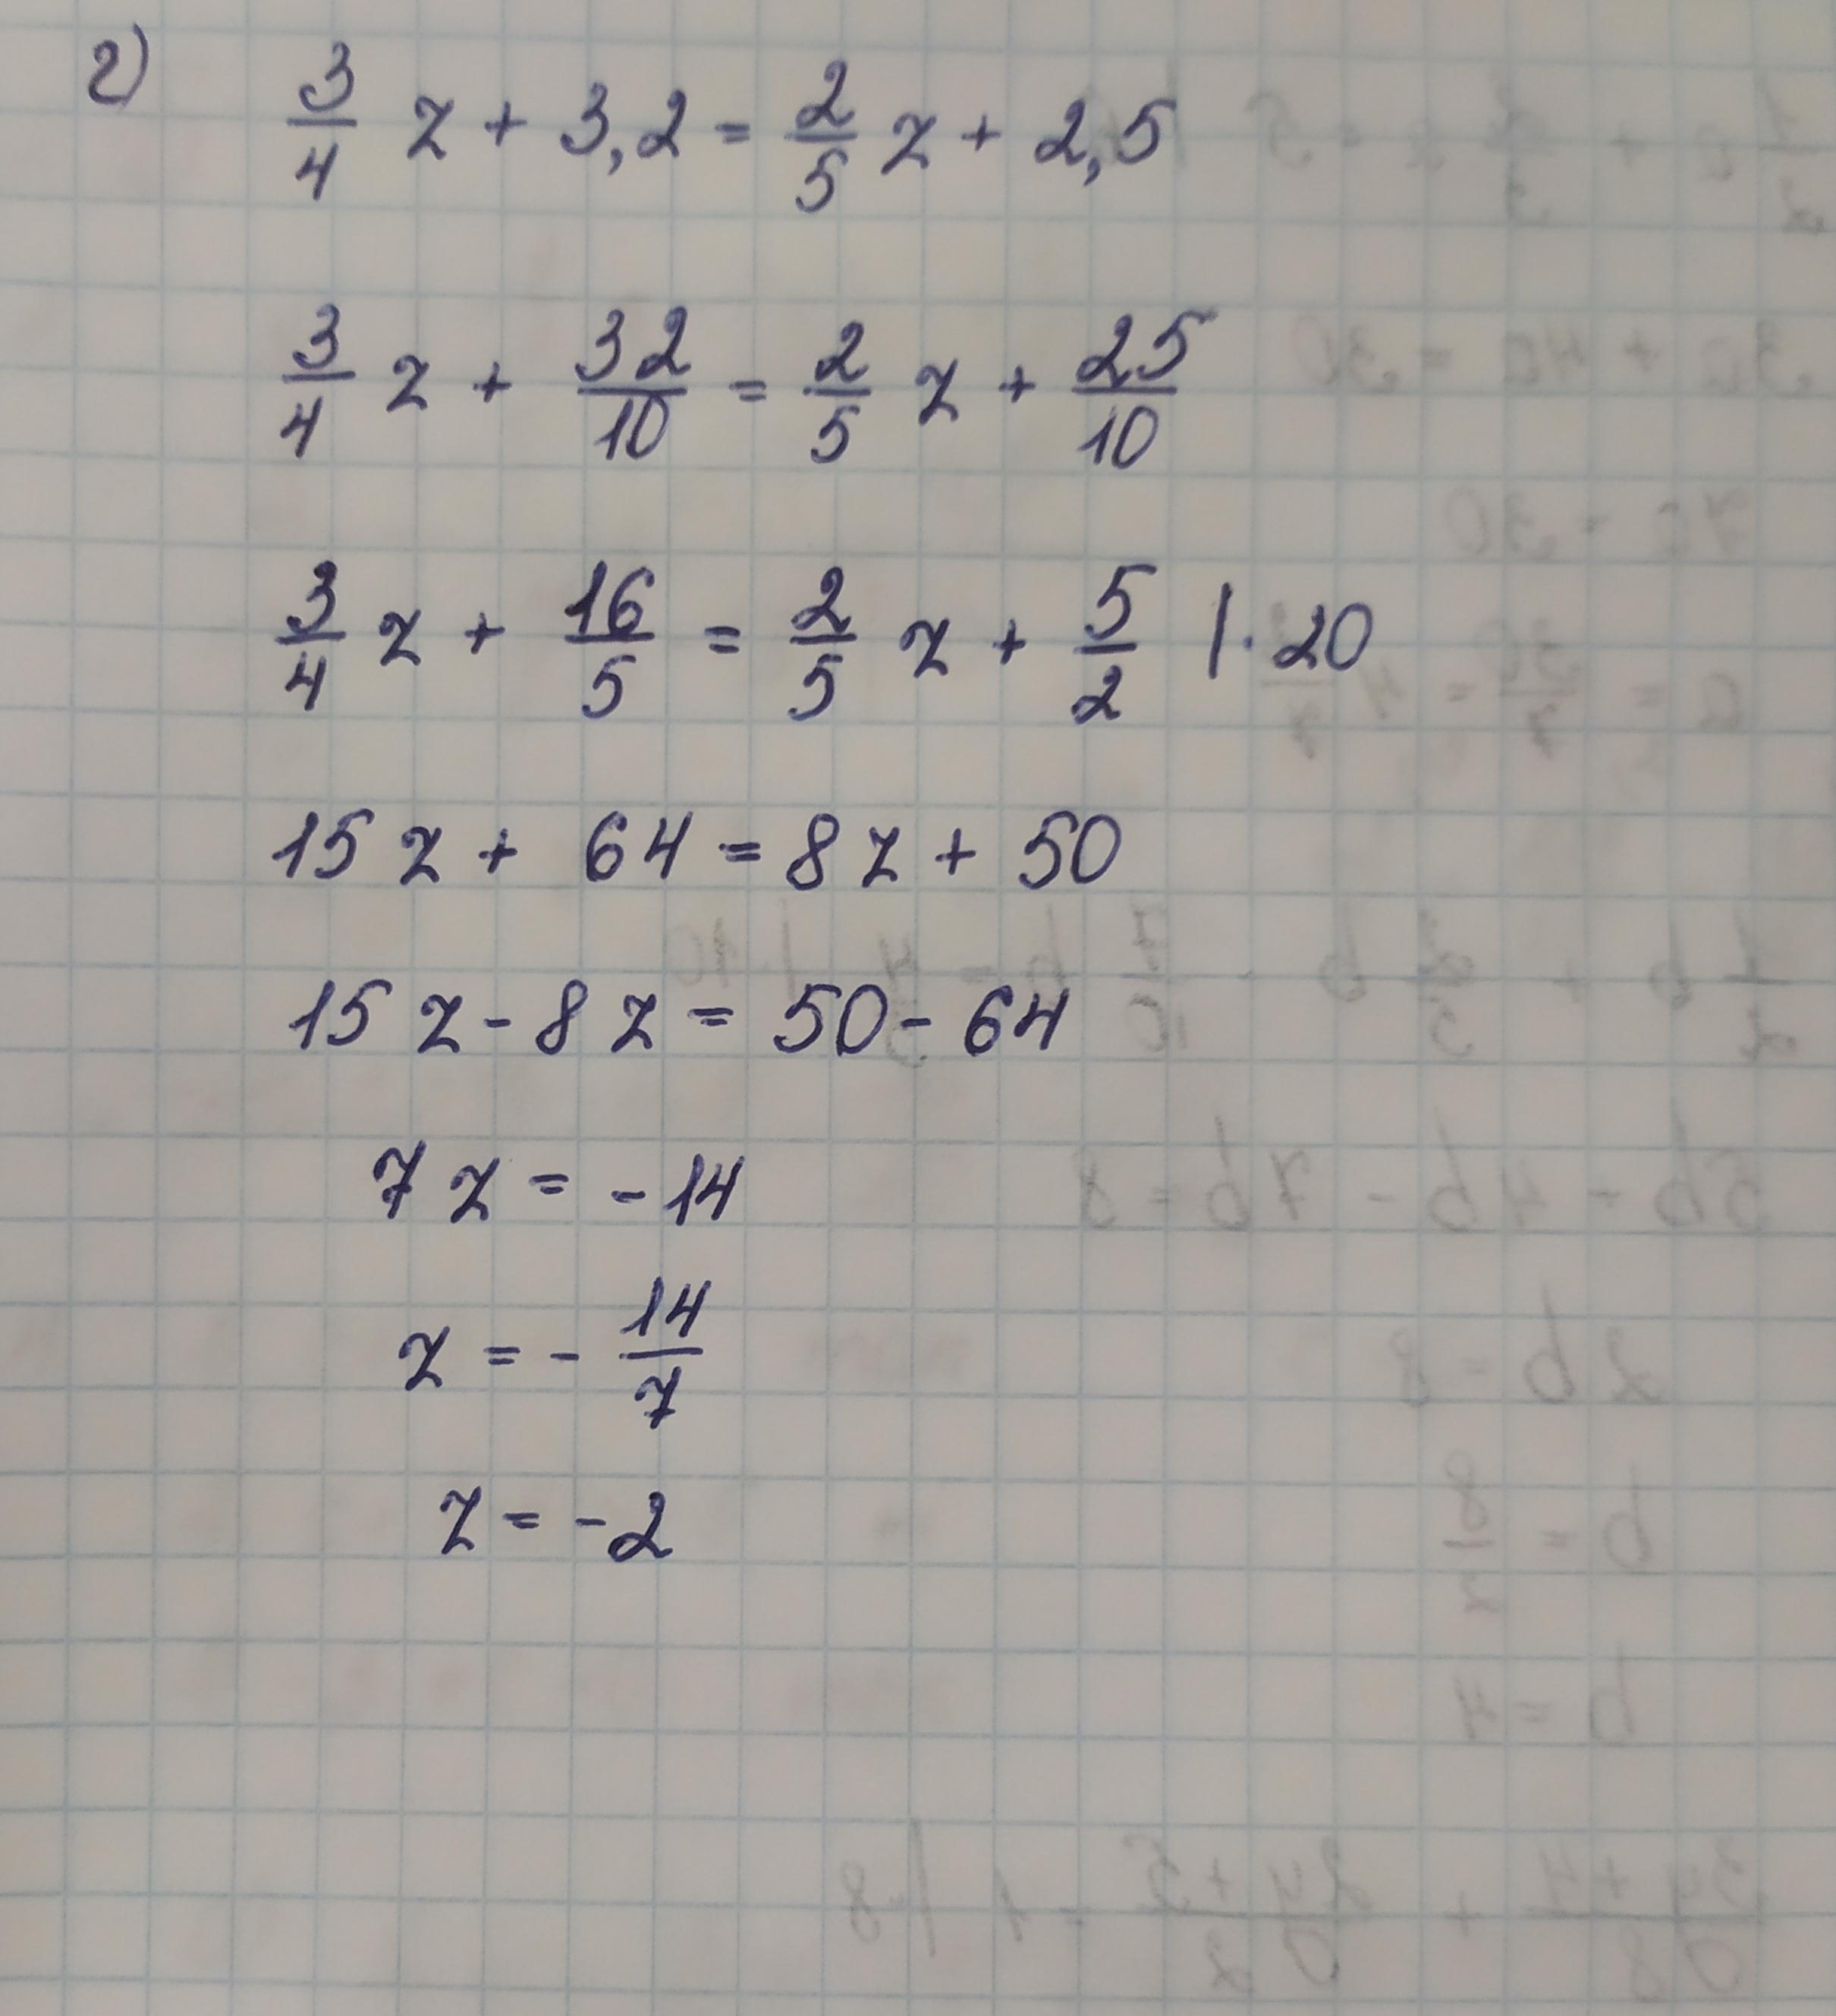 г) 3/4 z + 3,2 = 2/5 z + 2,5
3/4 z + 32/10 = 2/5 z + 25/10
3/4 z + 16/5 = 2/5 z + 5/2 | · 20
15 z + 64 = 8 z + 50
15 z - 8 z = 50 - 64
7 z = - 14
z = - 14/7
z = - 2